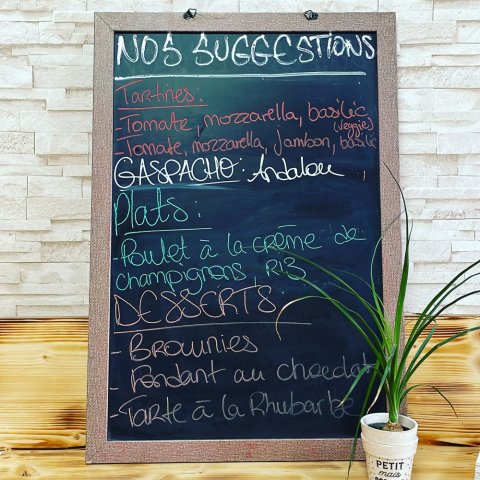 NOS SUGGESTIONS
Tartines :
- Tomate, mozzarella, basilic
(veggie)
- Tomate, mozzarella, jambon, basilic
GASPACHO : Andalou
Plats :
- Poulet à la crème de
champignons RIZ
DESSERTS :
- Brownies
- Fondant au chocolat
- Tarte à la Rhubarbe
PETIT
mais